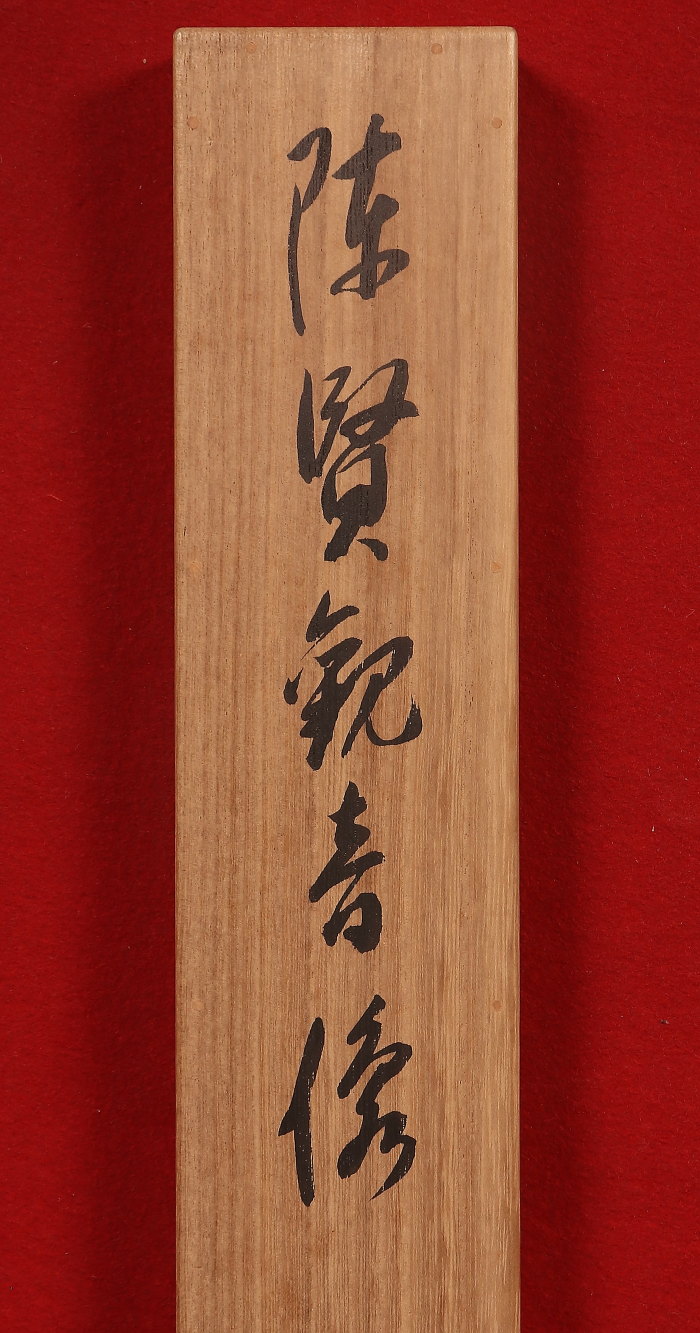 陳賢觀音像